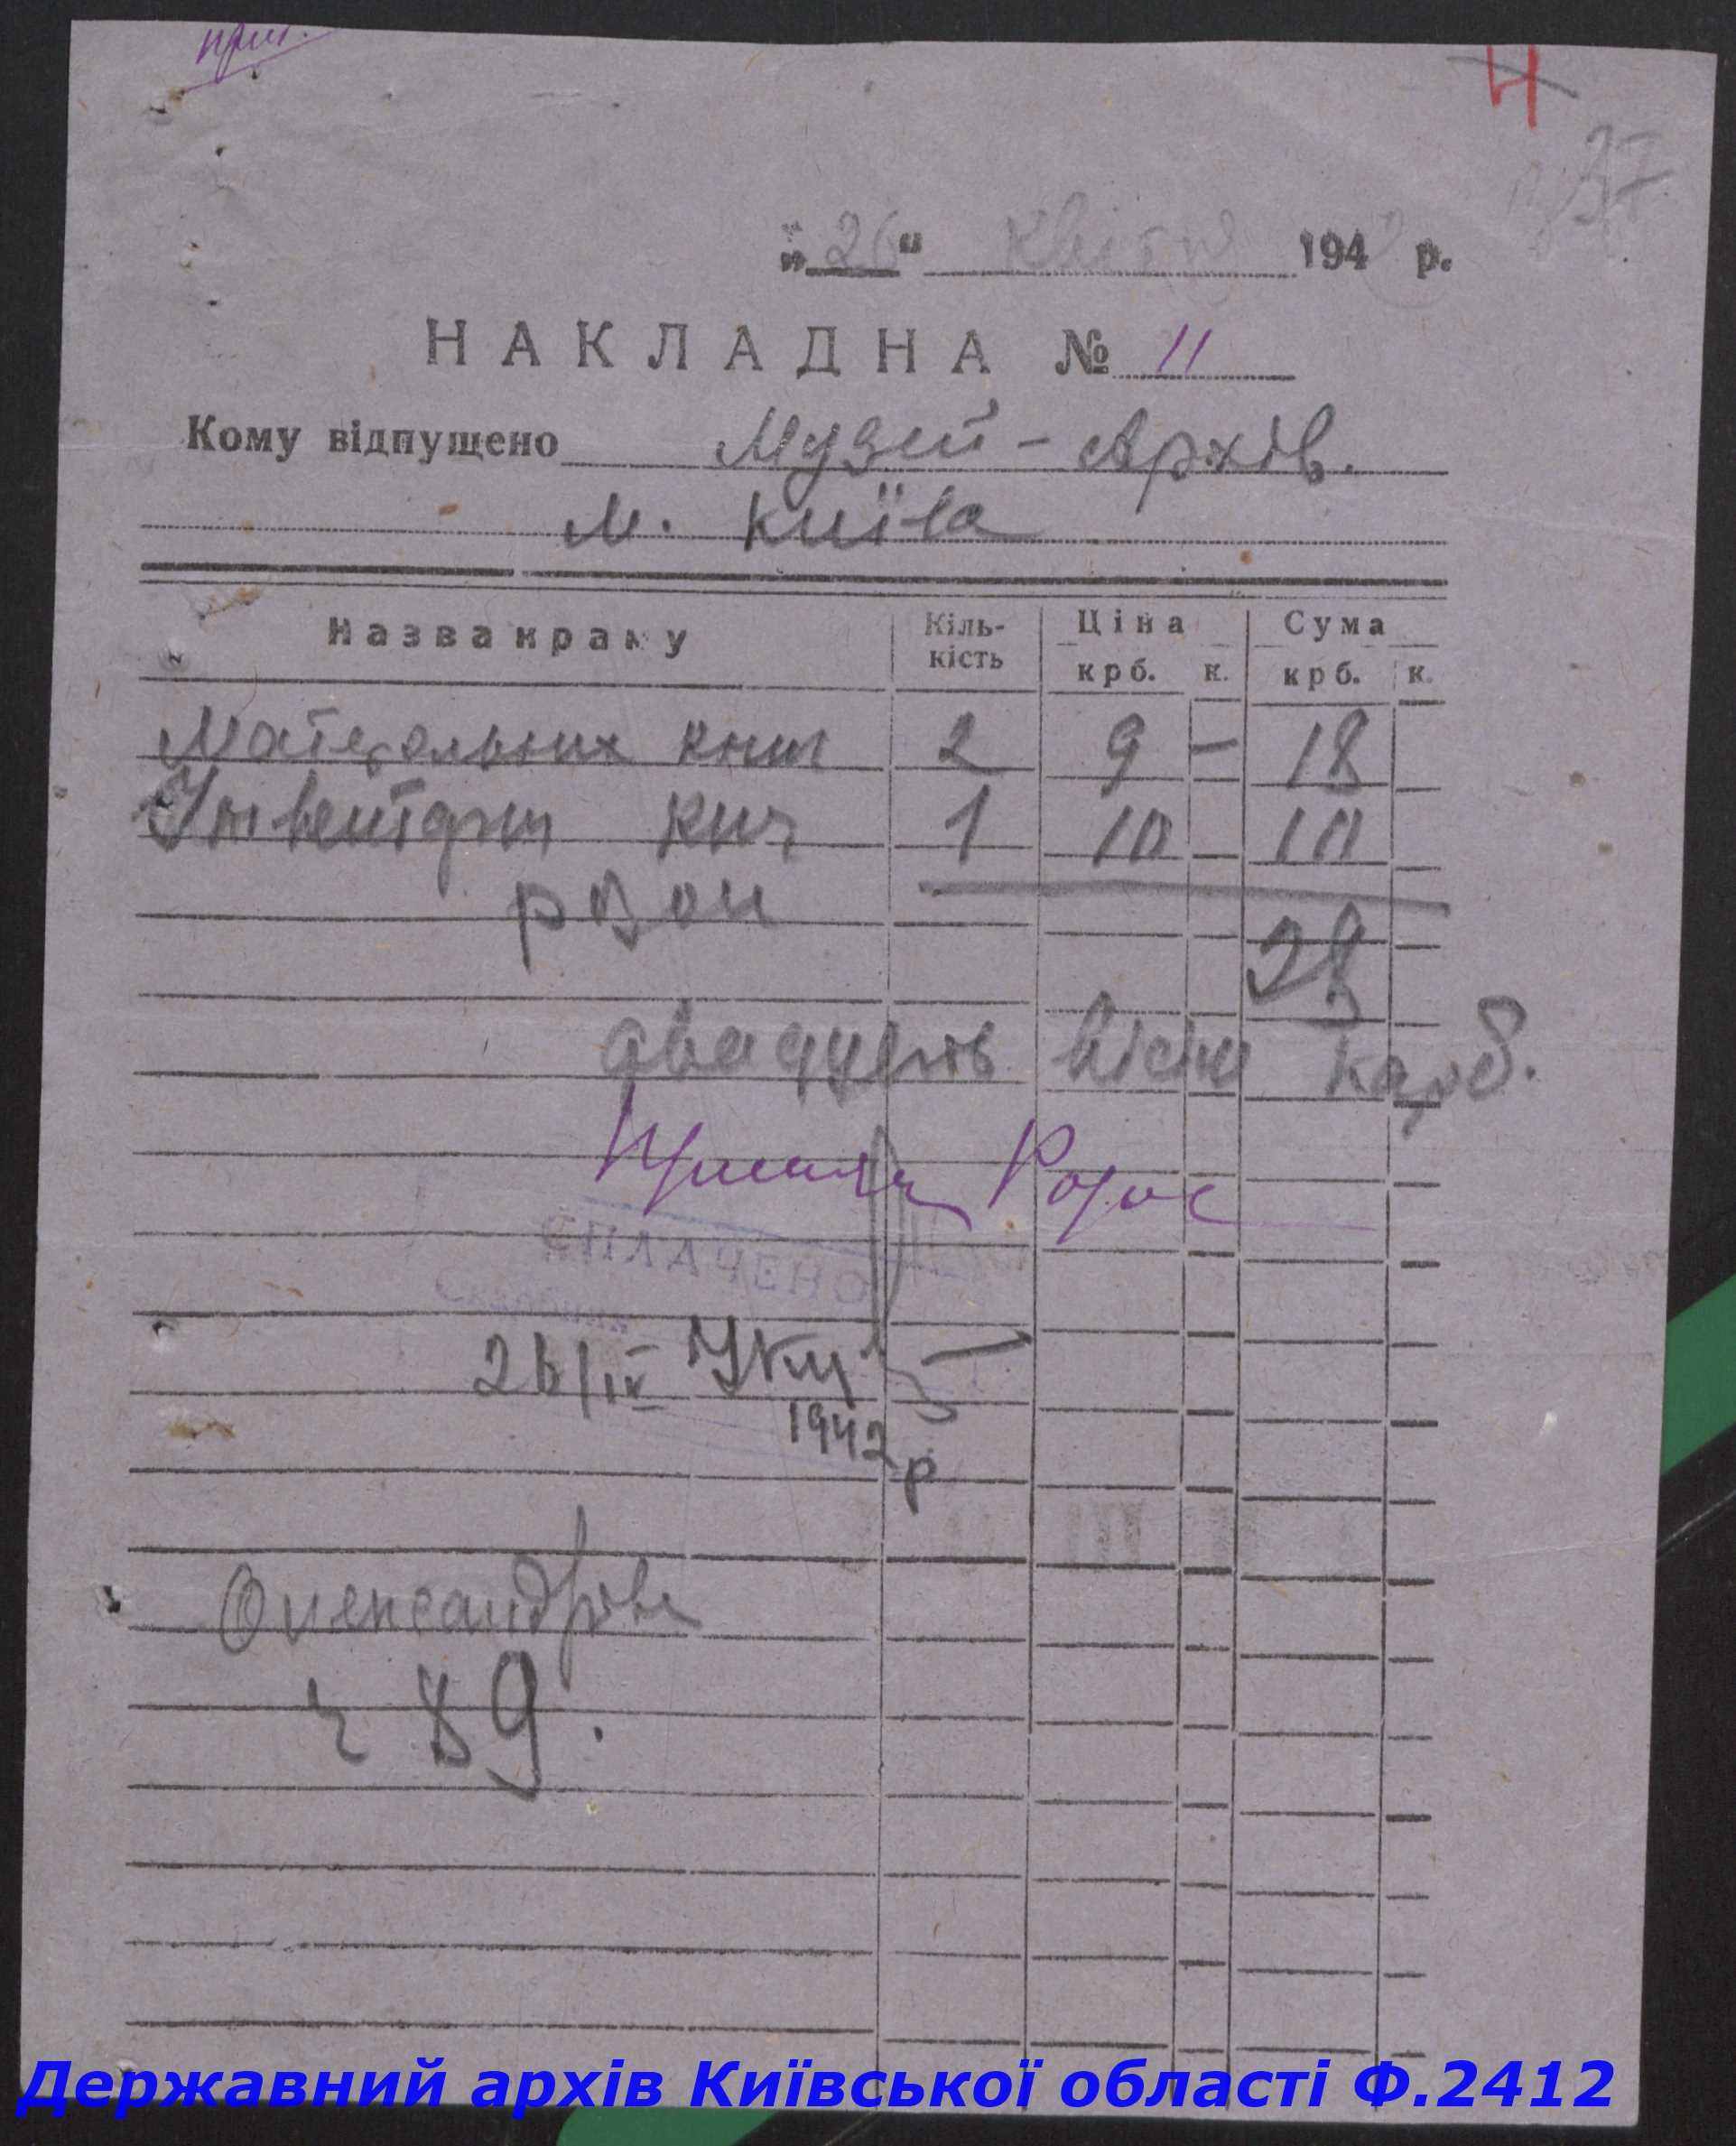 прин.
4
37
„26“ квітня 1942 р.
НАКЛАДНА № 11
Кому відпущено Музей-Архів.
м. Київа
Назва краму Кіль-кість Ціна крб. к. Сума крб. к.
Матеріольних книг 2 9 – 18
Інвентарн книг 1 10 10
разом
28
двадцять вісім карб.
СПЛАЧЕНО
26/IV
1942 р
Олександрівс
ч 89.
Державний архів Київської області Ф.2412